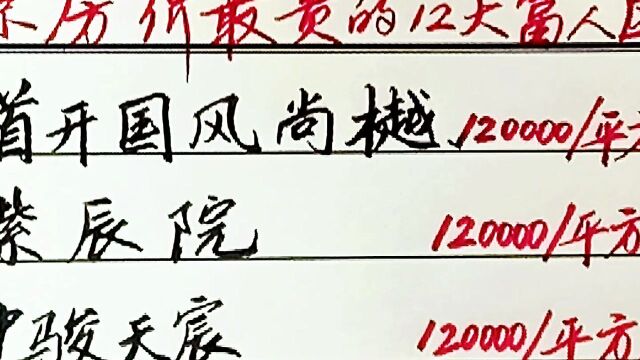 京房价最贵的12大富人区
首开国风尚樾 120000/平方
紫辰院 120000/平方
中骏天宸 120000/平方